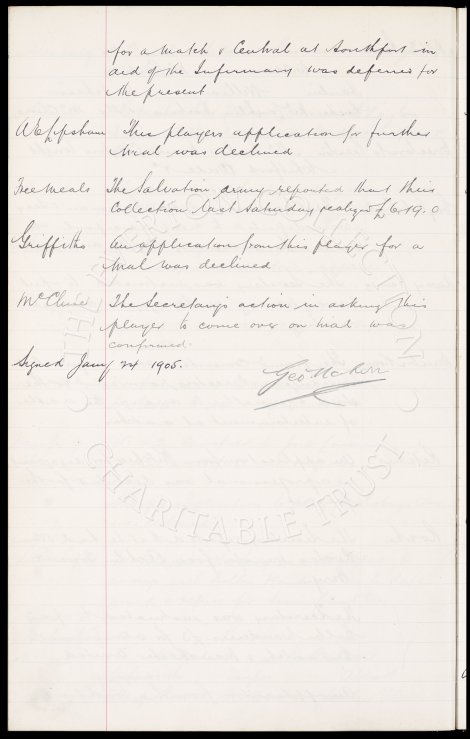 for a match v Central at Southport in
aid of the Infirmary was deferred for
the present
This players application for further
trial was declined
Free Meals The Salvation army reported that this
Collection last Saturday realized £6.19.0
Griffiths An application from this player for a
trial was declined
McClure The Secretarys action in asking this
player to come over on trial was
confirmed.
Signed Jany 24 1905.
Geo Mahon
THE EVERTON COLLECTION
CHARITABLE TRUST